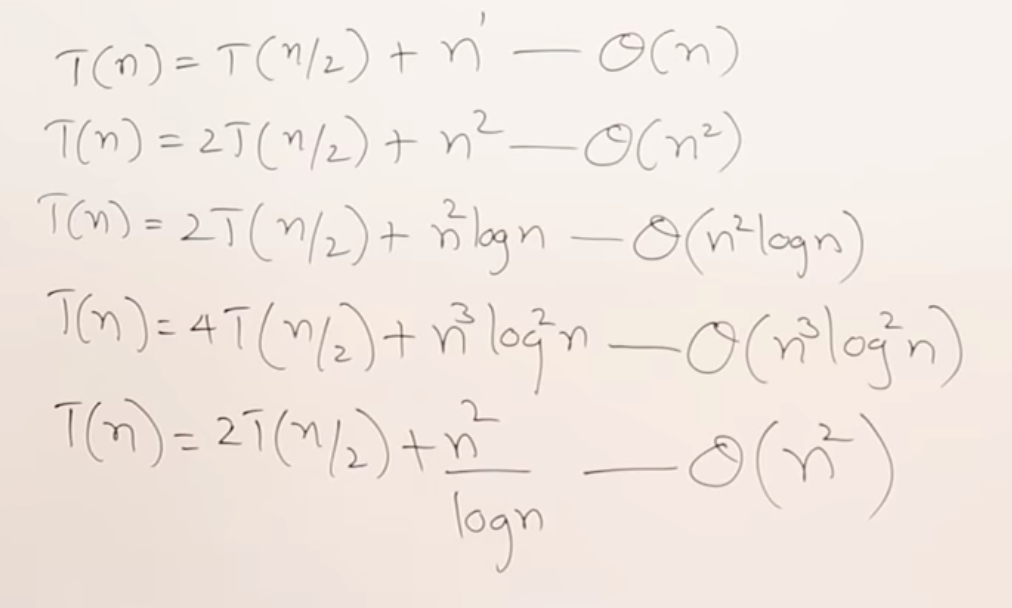 T(n) = T(n/2) + n¹ — O(n)
T(n) = 2T(n/2) + n² — O(n²)
T(n) = 2T(n/2) + n²logn — O(n²logn)
T(n) = 4T(n/2) + n³log²n — O(n³log²n)
T(n) = 2T(n/2) + n²/logn — O(n²)